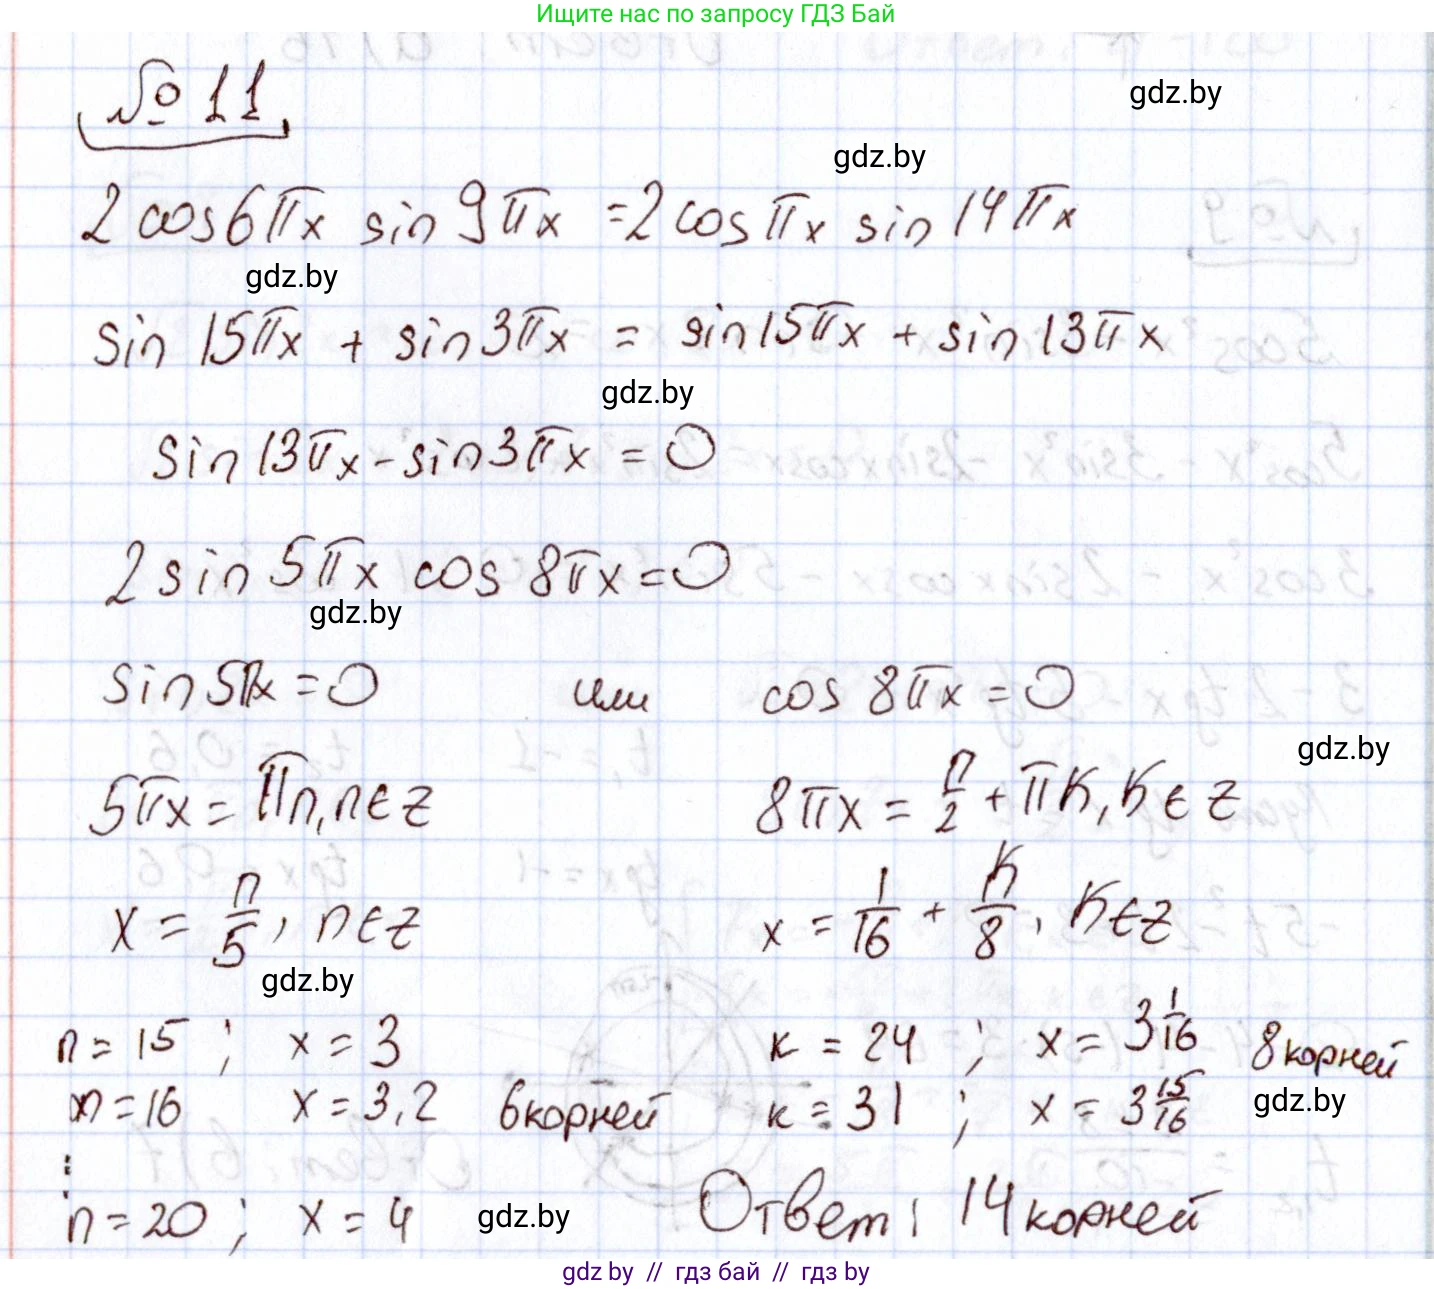 Ищите нас по запросу ГДЗ Бай
№ 11
gdz.by
gdz.by
2 cos 6πx sin 9πx = 2 cos πx sin 14πx
gdz.by
sin 15πx + sin 3πx = sin 15πx + sin 13πx
gdz.by
sin 13πx - sin 3πx = 0
2 sin 5πx cos 8πx = 0
gdz.by
sin 5πx = 0 или cos 8πx = 0
gdz.by
5πx = πn, n ∈ Z 8πx = π/2 + πk, k ∈ Z
x = n/5, n ∈ Z x = 1/16 + k/8, k ∈ Z
gdz.by
n = 15 ; x = 3 k = 24 ; x = 3 1/16 8 корней
n = 16 x = 3,2 6 корней k = 31 ; x = 3 15/16
gdz.by
⋮
n = 20 ; x = 4 gdz.by Ответ: 14 корней
gdz.by // гдз бай // гдз by